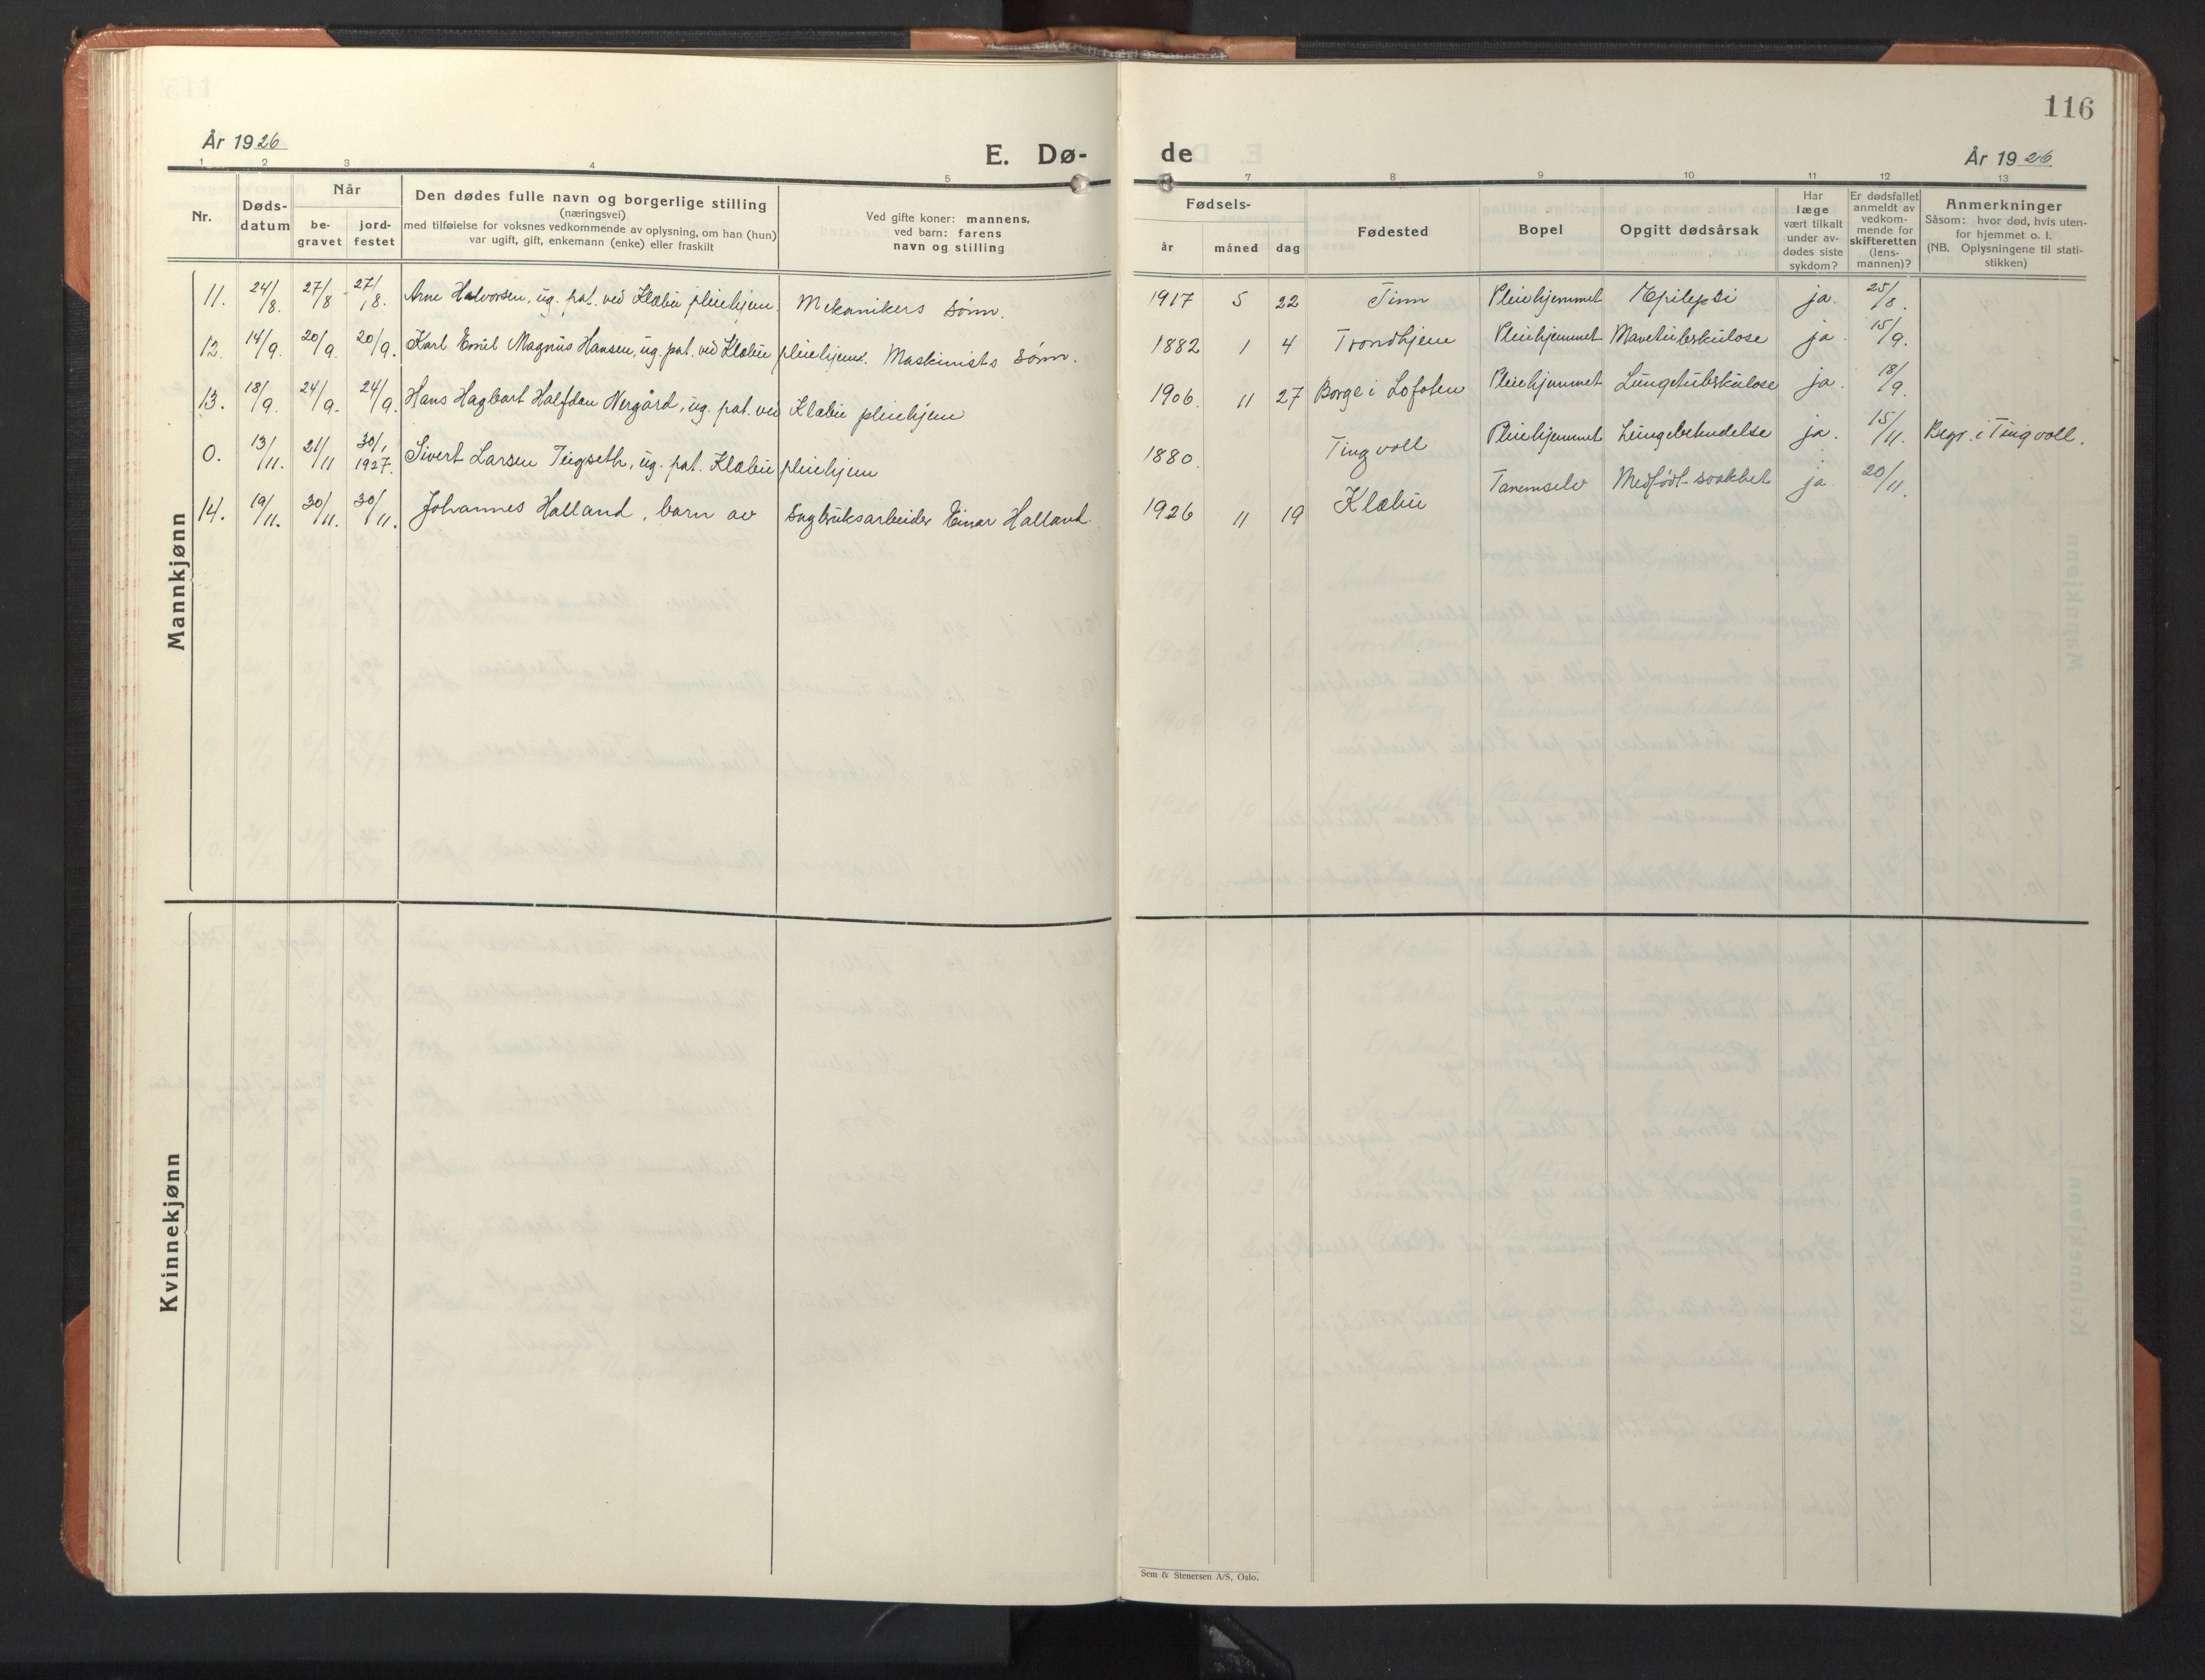 116
År 1926
E. Dø-
de
År 1926
1 2 3 4 5 7 8 9 10 11 12 13
Nr.
Døds-
datum
Når
be-
gravet
jord-
festet
Den dødes fulle navn og borgerlige stilling
(næringsvei)
med tilføielse for voksnes vedkommende av oplysning, om han (hun)
var ugift, gift, enkemann (enke) eller fraskilt
Ved gifte koner: mannens,
ved barn: farens
navn og stilling
Fødsels-
år måned dag
Fødested
Bopel
Opgitt dødsårsak
Har
læge
vært tilkalt
under av-
dødes siste
sykdom?
Er dødsfallet
anmeldt av
vedkom-
mende for
skifteretten
(lens-
mannen)?
Anmerkninger
Såsom: hvor død, hvis uten-
for hjemmet o. l.
(NB. Oplysningene til stati-
stikken)
Mannkjønn
11. 24/8. 27/8 27/8. Arne Halvorsen, ug. pat. ved Klæbu pleiehjem. Mekanikers sønn. 1917 5 22 Tinn Pleiehjemmet Epilepsi ja. 25/8.
12. 14/9. 20/9. 20/9. Karl Emil Magnus Hansen, ug. pat. ved Klæbu pleiehjem. Maskinists sønn. 1882 1 4 Trondhjem Pleiehjemmet Mavetuberkulose ja. 15/9.
13. 18/9. 24/9. 24/9. Hans Hagbart Halfdan Nergård, ug. pat. ved Klæbu pleiehjem 1906 11 27 Borge i Lofoten Pleiehjemmet Lungetuberkulose ja. 18/9.
0. 13/11. 21/11 30/1 1927. Sivert Larsen Teigseth, ug. pat. Klæbu pleiehjem 1880. Tingvoll Pleiehjemmet Lungebetendelse ja. 15/11. Begr. i Tingvoll.
14. 19/11. 30/11. 30/11. Johannes Halland, barn av Sagbruksarbeider Einar Halland. 1926 11 19 Klæbu Tanemselv Medfødt svakhet ja. 20/11.
Kvinnekjønn
Sem & Stenersen A/S, Oslo.